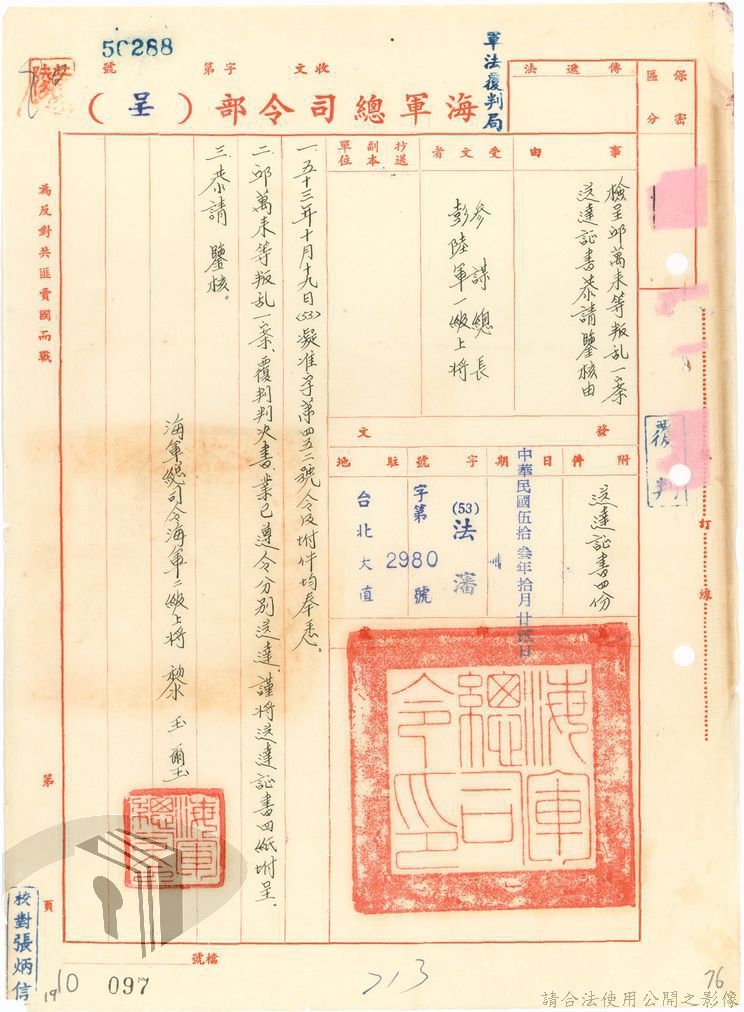 50288
收文 字第 號
軍法覆判局
海軍總司令部（呈）
傳遞法
保密區分
事由
檢呈邱萬來等叛乱一案
送達証書恭請鑒核由
受文者
參謀總長
彭陸軍一級上將
抄送副本單位
發文
附件
送達証書四份
日期
中華民國伍拾叁年拾月廿弍日
字號
(53)法審
字第2980號
駐地
台北大直
一、五十三年十月十九日(53)凝准字第四五二號令及附件均奉悉。
二、邱萬來等叛乱一案、覆判判決書、業已遵令分別送達、謹將送達証書四紙附呈。
三、恭請 鑒核。
海軍總司令海軍二級上將 黎玉璽
海軍總司令印
海軍總司令
為反對共匪賣國而戰
訂線
第 頁
校對張炳信
檔號
1910 097
213
76
請合法使用公開之影像